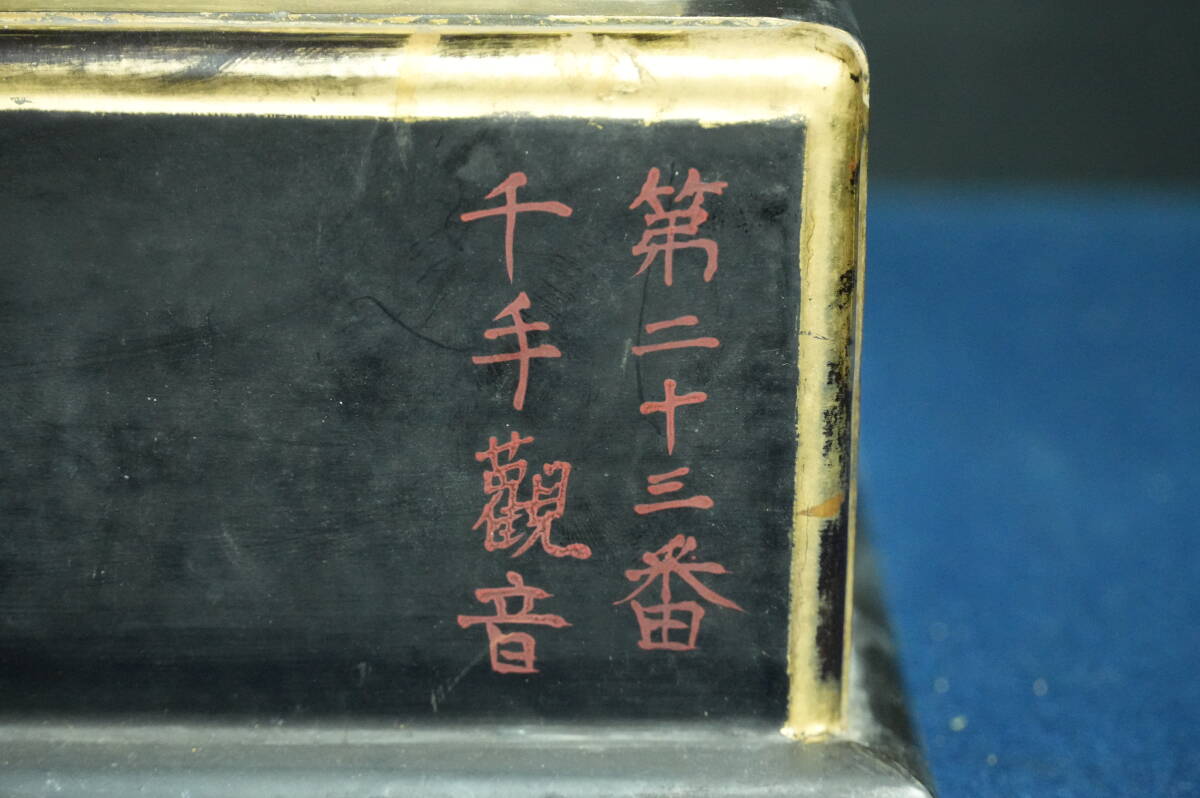 第二十三番
千手觀音